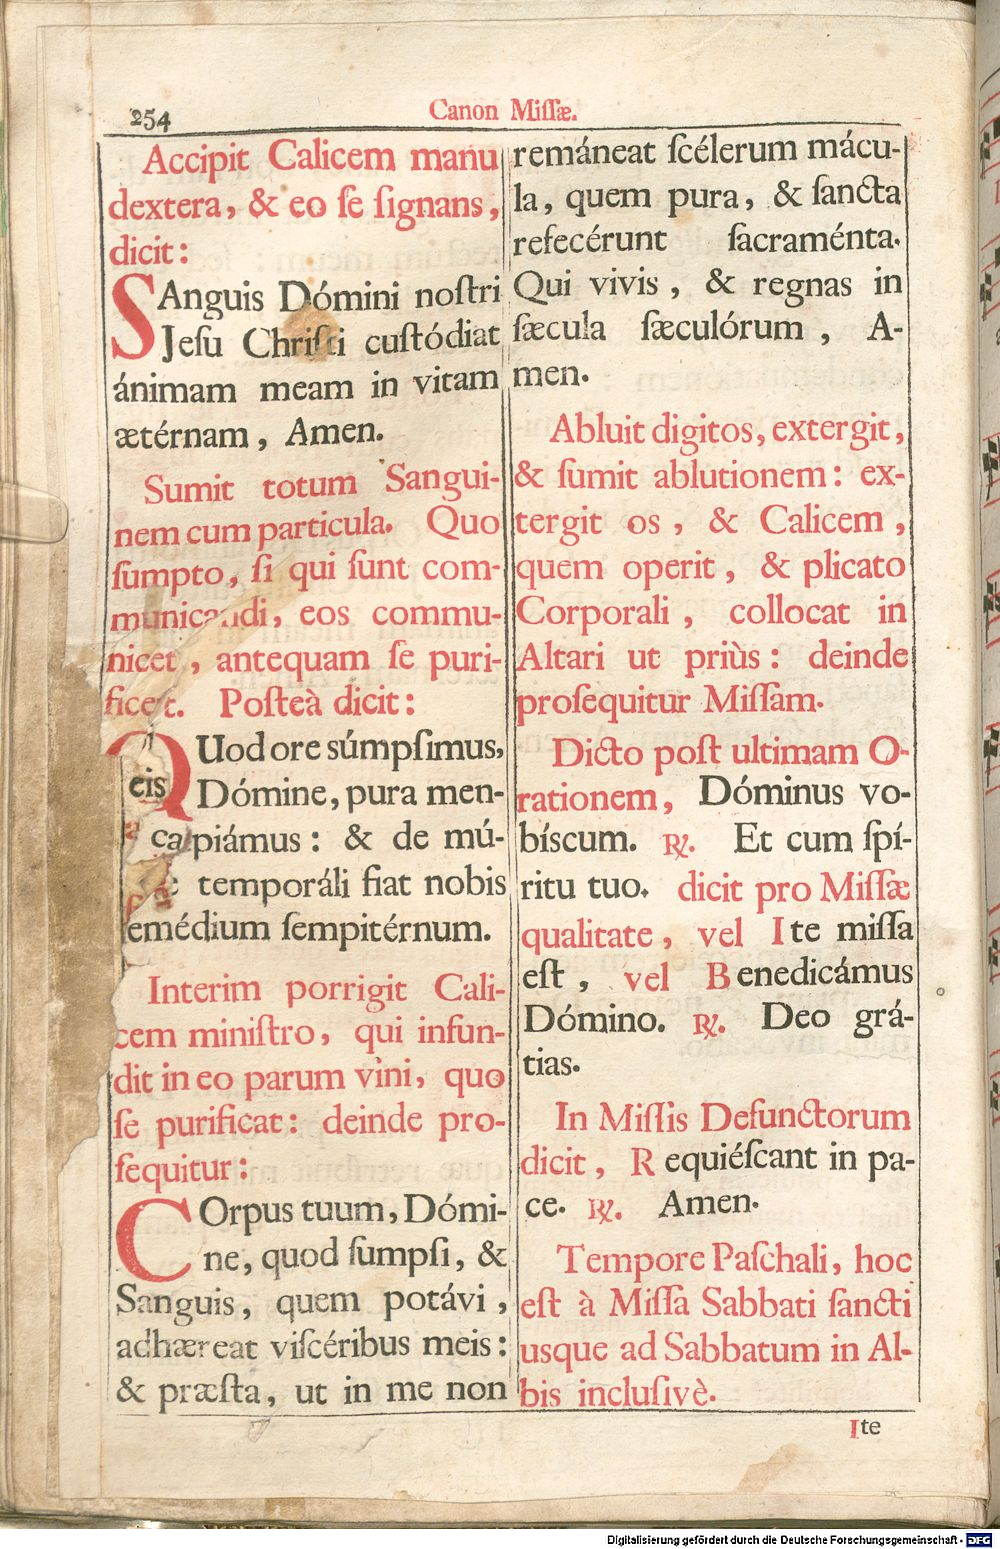 254
Canon Miſſæ.
Accipit Calicem manu
dextera, & eo ſe ſignans,
dicit:
SAnguis Dómini noſtri
Jeſu Chriſti cuſtódiat
ánimam meam in vitam
ætérnam, Amen.
Sumit totum Sangui-
nem cum particula. Quo
ſumpto, ſi qui ſunt com-
municandi, eos commu-
nicet, antequam ſe puri-
ficet. Poſteà dicit:
QUod ore súmpſimus,
Dómine, pura men-
eis
a
capiámus: & de mú-
temporáli fiat nobis
emédium ſempitérnum.
Interim porrigit Cali-
cem miniſtro, qui infun-
dit in eo parum vini, quo
ſe purificat: deinde pro-
ſequitur:
COrpus tuum, Dómi-
ne, quod ſumpſi, &
Sanguis, quem potávi,
adhæreat viſcéribus meis:
& præſta, ut in me non
remáneat ſcélerum mácu-
la, quem pura, & ſancta
refecérunt ſacraménta.
Qui vivis, & regnas in
ſæcula ſæculórum, A-
men.
Abluit digitos, extergit,
& ſumit ablutionem: ex-
tergit os, & Calicem,
quem operit, & plicato
Corporali, collocat in
Altari ut priùs: deinde
proſequitur Miſſam.
Dicto poſt ultimam O-
rationem, Dóminus vo-
bíscum. ℟. Et cum ſpí-
ritu tuo. dicit pro Miſſæ
qualitate, vel Ite miſſa
eſt, vel Benedicámus
Dómino. ℟. Deo grá-
tias.
In Miſſis Defunctorum
dicit, Requiéſcant in pa-
ce. ℟. Amen.
Tempore Paſchali, hoc
eſt à Miſſa Sabbati ſancti
usque ad Sabbatum in Al-
bis incluſivè.
Ite
Digitalisierung gefördert durch die Deutsche Forschungsgemeinschaft - DFG